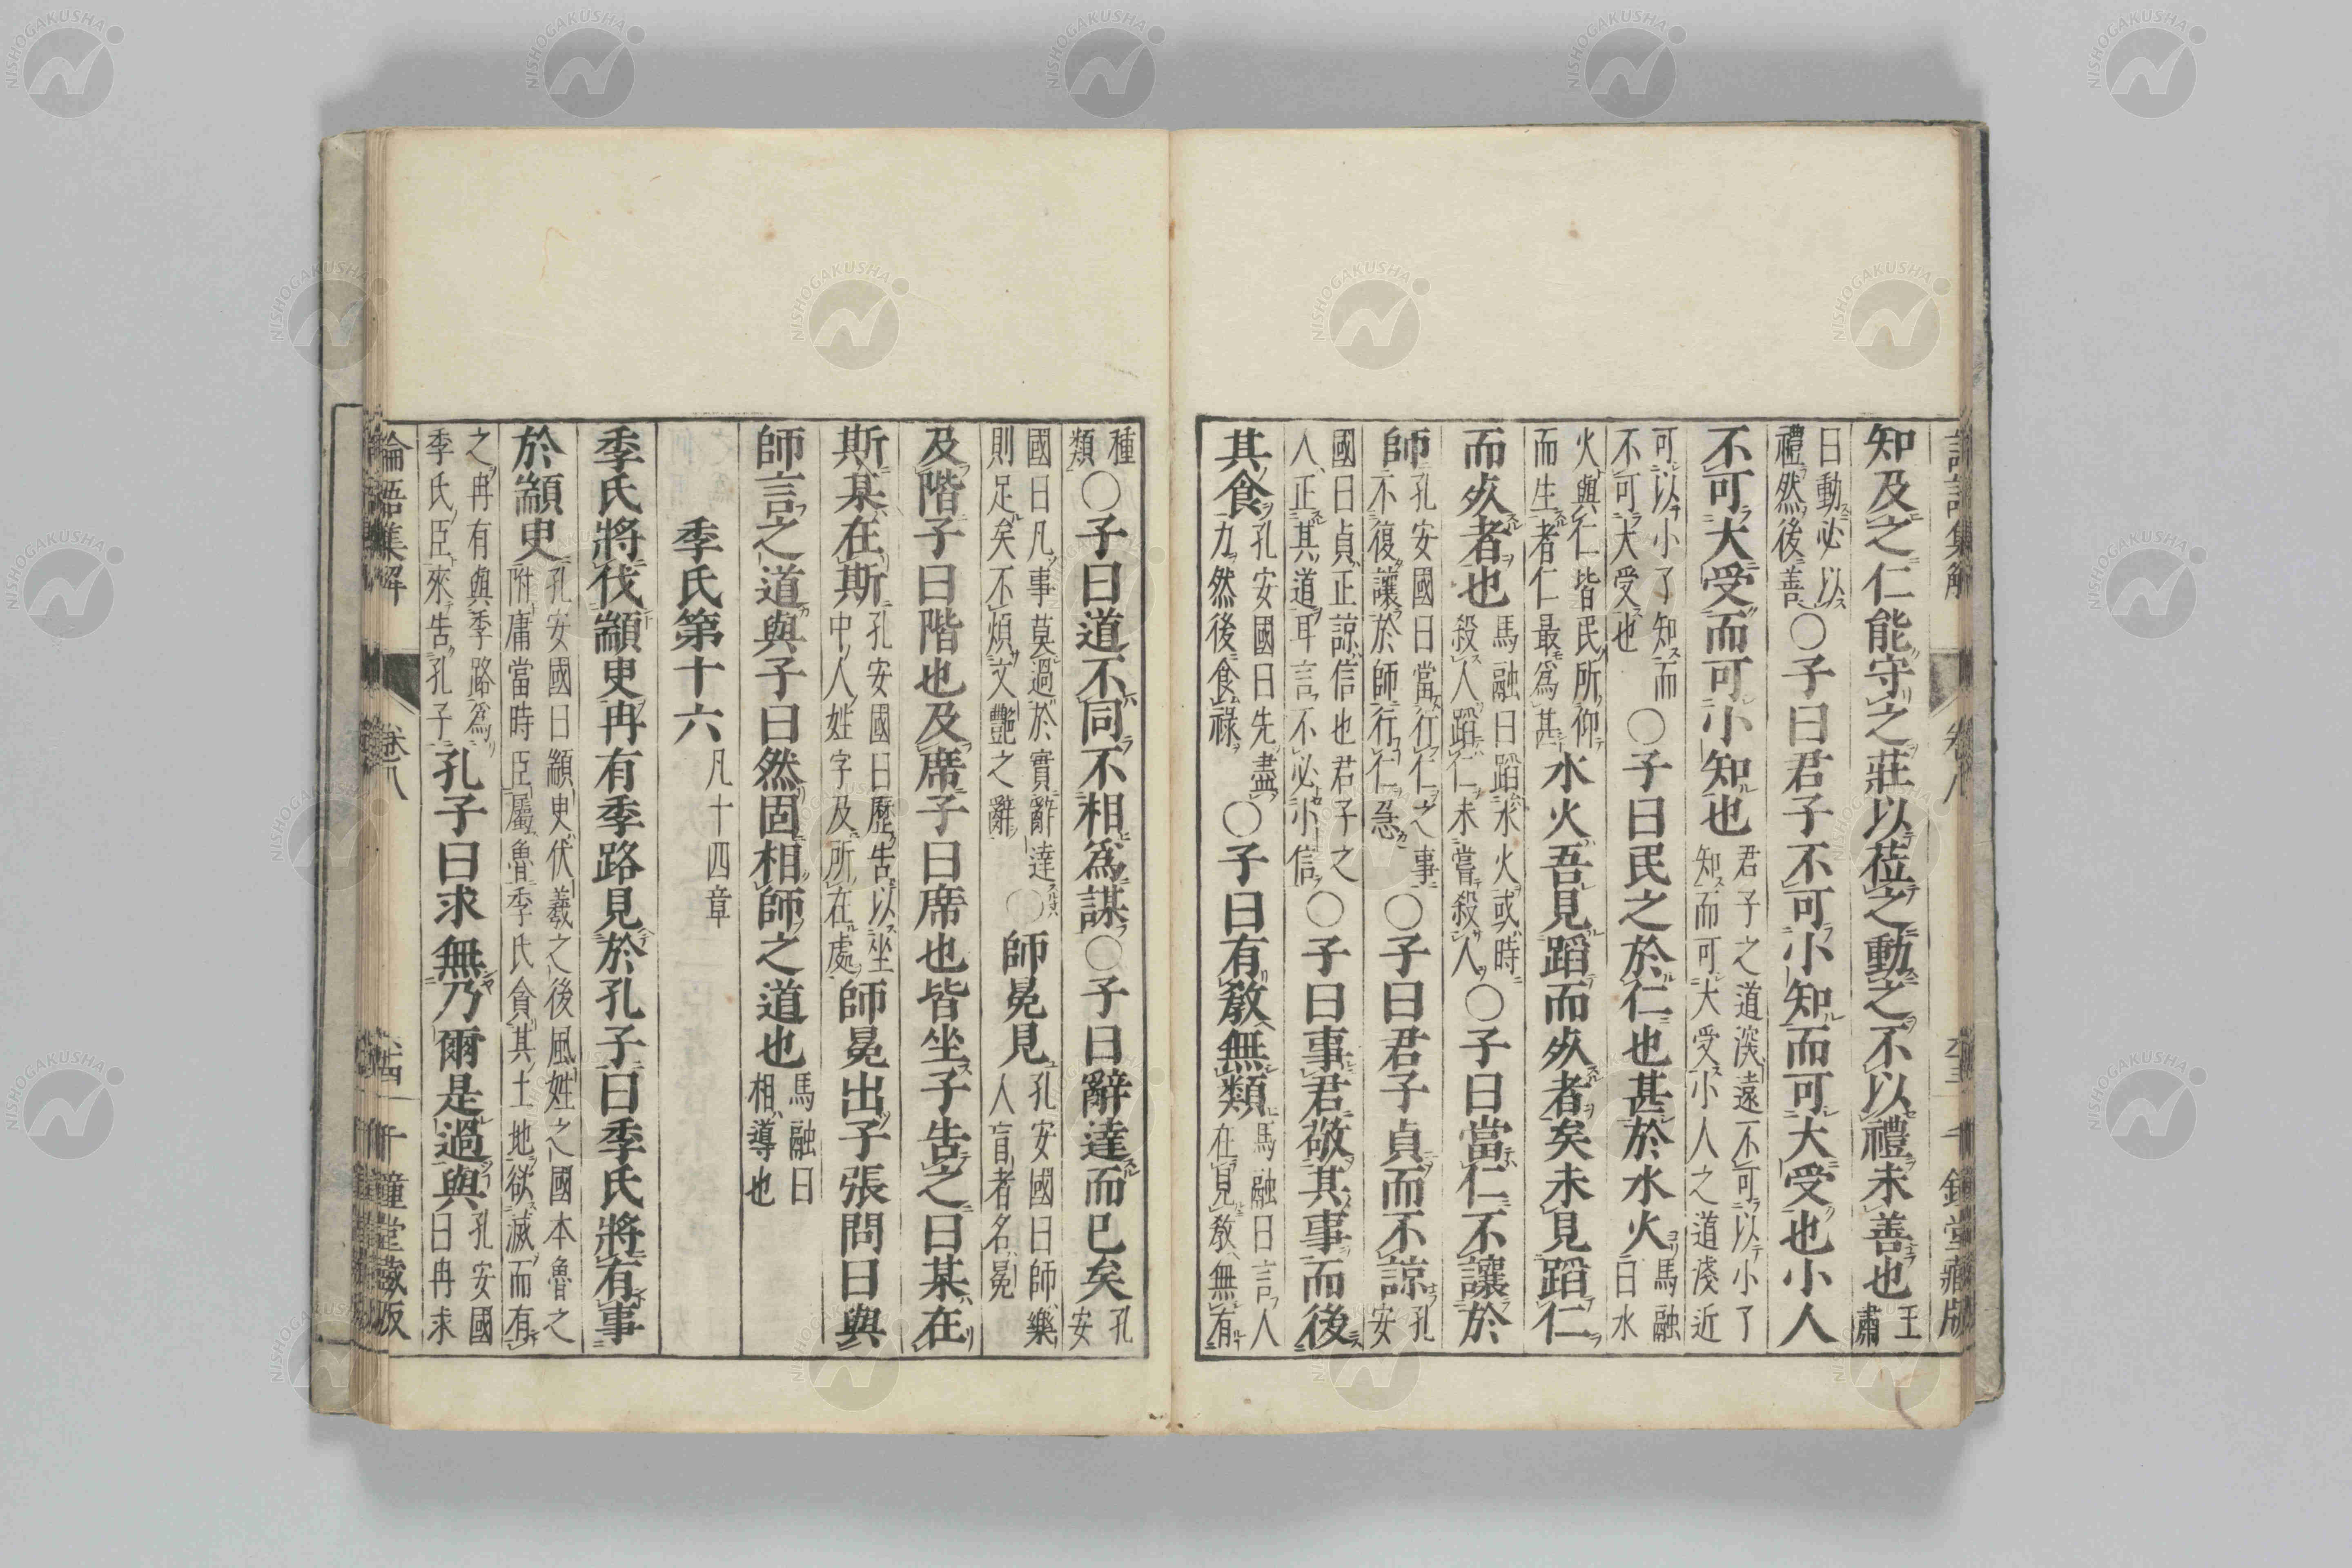 知及之仁能守之莊以莅之動之不以禮未善也王肅
曰動必以禮然後善○子曰君子不可小知而可大受也小人
不可大受而可小知也君子之道深遠不可以小了知而可大受小人之道淺近
可以小了知而不可大受也○子曰民之於仁也甚於水火馬融曰水
火與仁皆民所仰而生者仁最爲甚水火吾見蹈而死者矣未見蹈仁
而死者也馬融曰蹈水火或時殺人蹈仁未嘗殺人○子曰當仁不讓於
師孔安國曰當行仁之事不復讓於師行仁急○子曰君子貞而不諒孔安
國曰貞正諒信也君子之人正其道耳言不必小信○子曰事君敬其事而後
其食孔安國曰先盡力然後食祿○子曰有敎無類馬融曰言人在見敎無有
種類○子曰道不同不相爲謀○子曰辭達而已矣孔安
國曰凡事莫過於實辭達則足矣不煩文艷之辭○師冕見孔安國曰師樂人盲者名冕
及階子曰階也及席子曰席也皆坐子告之曰某在
斯某在斯孔安國曰歷告以坐中人姓字及所在處師冕出子張問曰與
師言之道與子曰然固相師之道也馬融曰相導也
季氏第十六凡十四章
季氏將伐顓臾冉有季路見於孔子曰季氏將有事
於顓臾孔安國曰顓臾伏羲之後風姓之國本魯之附庸當時臣屬魯季氏貪其土地欲滅而有
之冉有與季路爲季氏臣來告孔子孔子曰求無乃爾是過與孔安國曰冉求
論語集解 卷八 千鍾堂藏版